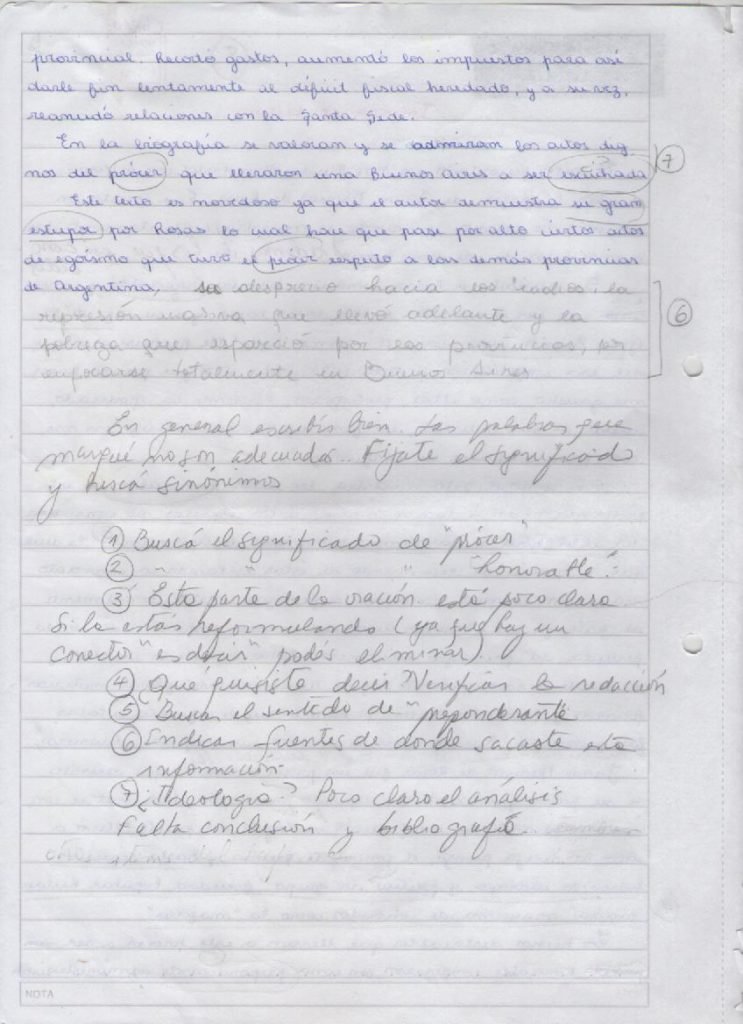 provincial. Recortó gastos, aumentó los impuestos para así
darle fin lentamente al déficit fiscal heredado, y a su vez,
reanudó relaciones con la Santa Sede.
En la biografía se valoran y se admiran los actos dig
nos del prócer que llevaron una Buenos Aires a ser escuchada
7
Este texto es novedoso ya que el autor demuestra su gran
estupor por Rosas lo cual hace que pase por alto ciertos actos
de egoísmo que tuvo el prócer respecto a las demás provincias
de Argentina, su desprecio hacia los indios, la
represión masiva que llevó adelante y la
6
pobreza que esparció por las provincias, por
enfocarse totalmente en Buenos Aires
En general escribís bien. Las palabras que
marqué no son adecuadas. Fijate el significado
y buscá sinónimos
1 Buscá el significado de "prócer"
2 " " " "honorable".
3 Esta parte de la oración está poco clara
Si la estás reformulando (ya que hay un
conector "es decir" podés eliminar)
4 ¿Qué quisiste decir? Verificar la redacción
5 Buscar el sentido de "preponderante
6 Indicar fuentes de donde sacaste esta
información.
7 ¿Ideología? Poco claro el análisis
Falta conclusión y bibliografía.
NOTA